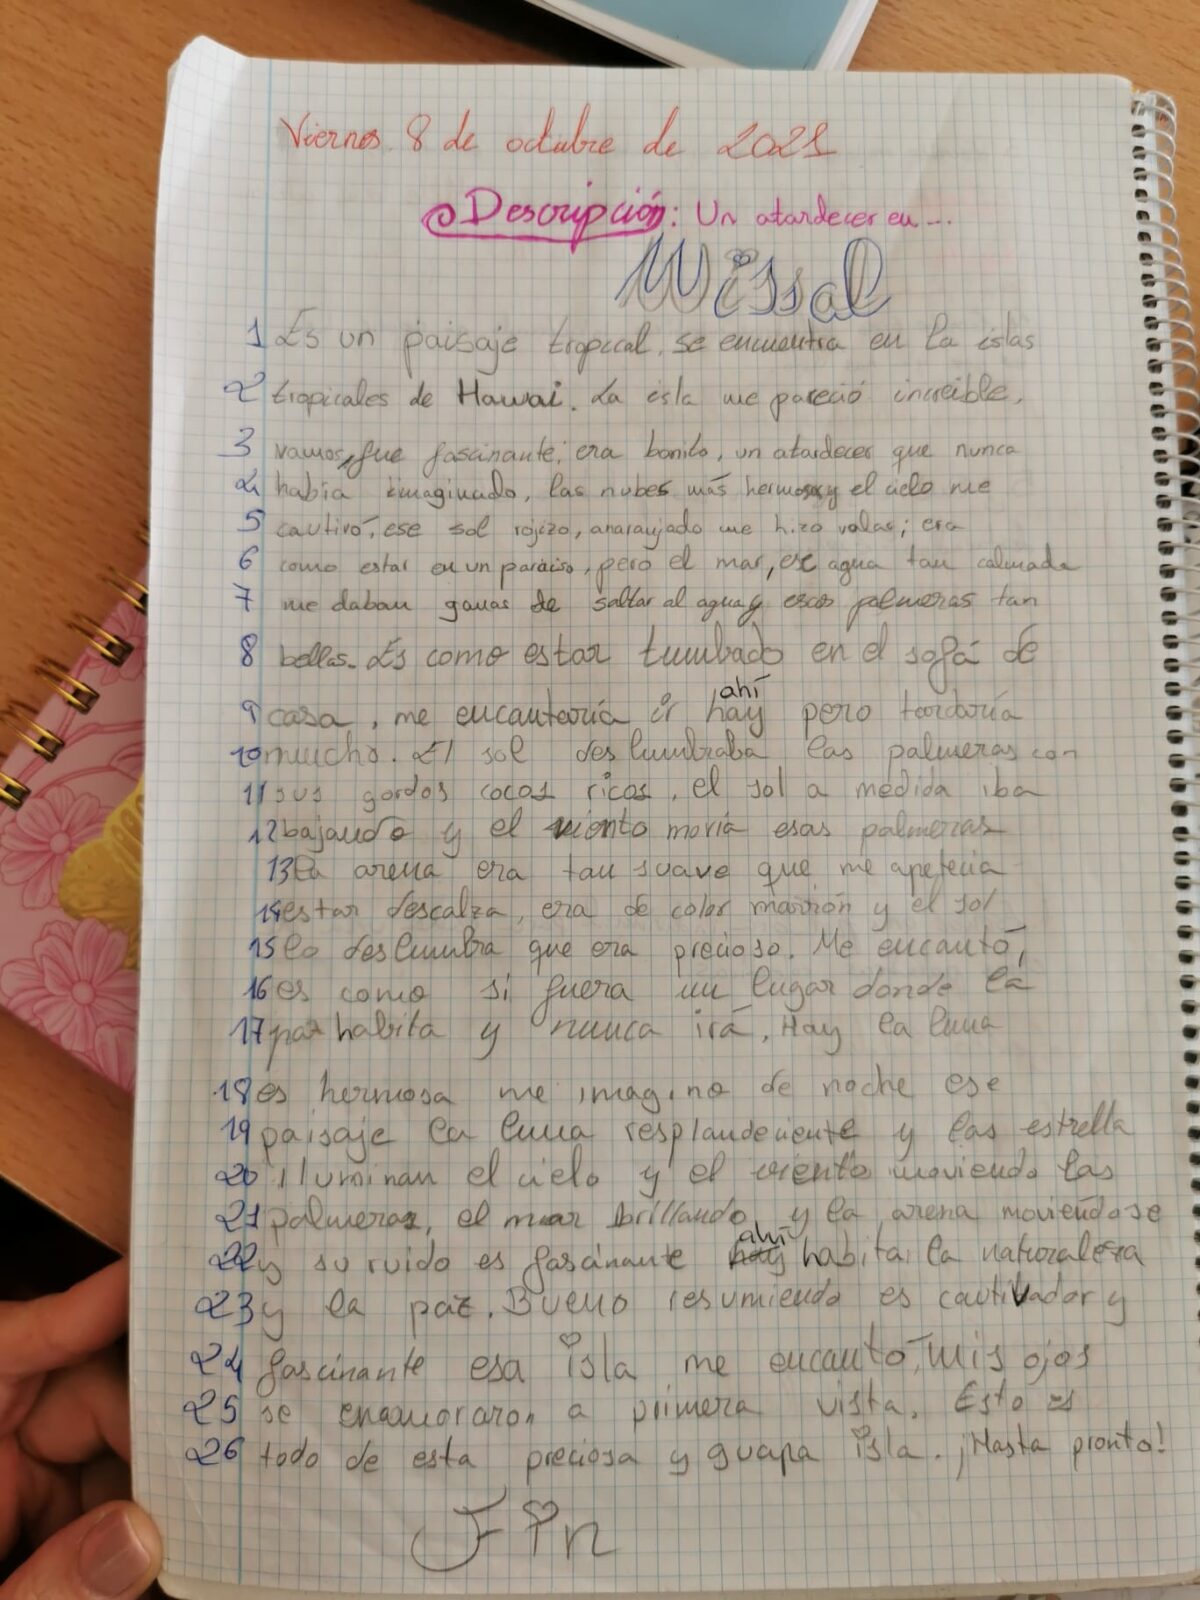 Viernes 8 de octubre de 2021
Descripción: Un atardecer en...
Wissal
1 Es un paisaje tropical, se encuentra en la islas
2 tropicales de Hawai. La isla me pareció increíble,
3 vamos, fue fascinante; era bonito, un atardecer que nunca
4 había imaginado, las nubes más hermosas y el cielo me
5 cautivó, ese sol rojizo, anaranjado me hizo volar; era
6 como estar en un paraíso, pero el mar, ese agua tan calmada
7 me daban ganas de saltar al agua y esas palmeras tan
8 bellas. Es como estar tumbado en el sofá de
ahí
9 casa, me encantaría ir hay pero tardaría
10 mucho. El sol deslumbraba las palmeras con
11 sus gordos cocos ricos, el sol a medida iba
12 bajando y el viento movía esas palmeras
13 la arena era tan suave que me apetecía
14 estar descalza, era de color marrón y el sol
15 lo deslumbra que era precioso. Me encantó,
16 es como si fuera un lugar donde la
17 paz habita y nunca irá. Hay la luna
18 es hermosa me imagino de noche ese
19 paisaje la luna resplandeciente y las estrella
20 iluminan el cielo y el viento moviendo las
21 palmeras, el mar brillando y la arena moviéndose
ahí
22 y su ruido es fascinante hay habita la naturaleza
23 y la paz. Bueno resumiendo es cautivador y
24 fascinante esa isla me encantó, mis ojos
25 se enamoraron a primera vista. Esto es
26 todo de esta preciosa y guapa isla. ¡Hasta pronto!
Fin